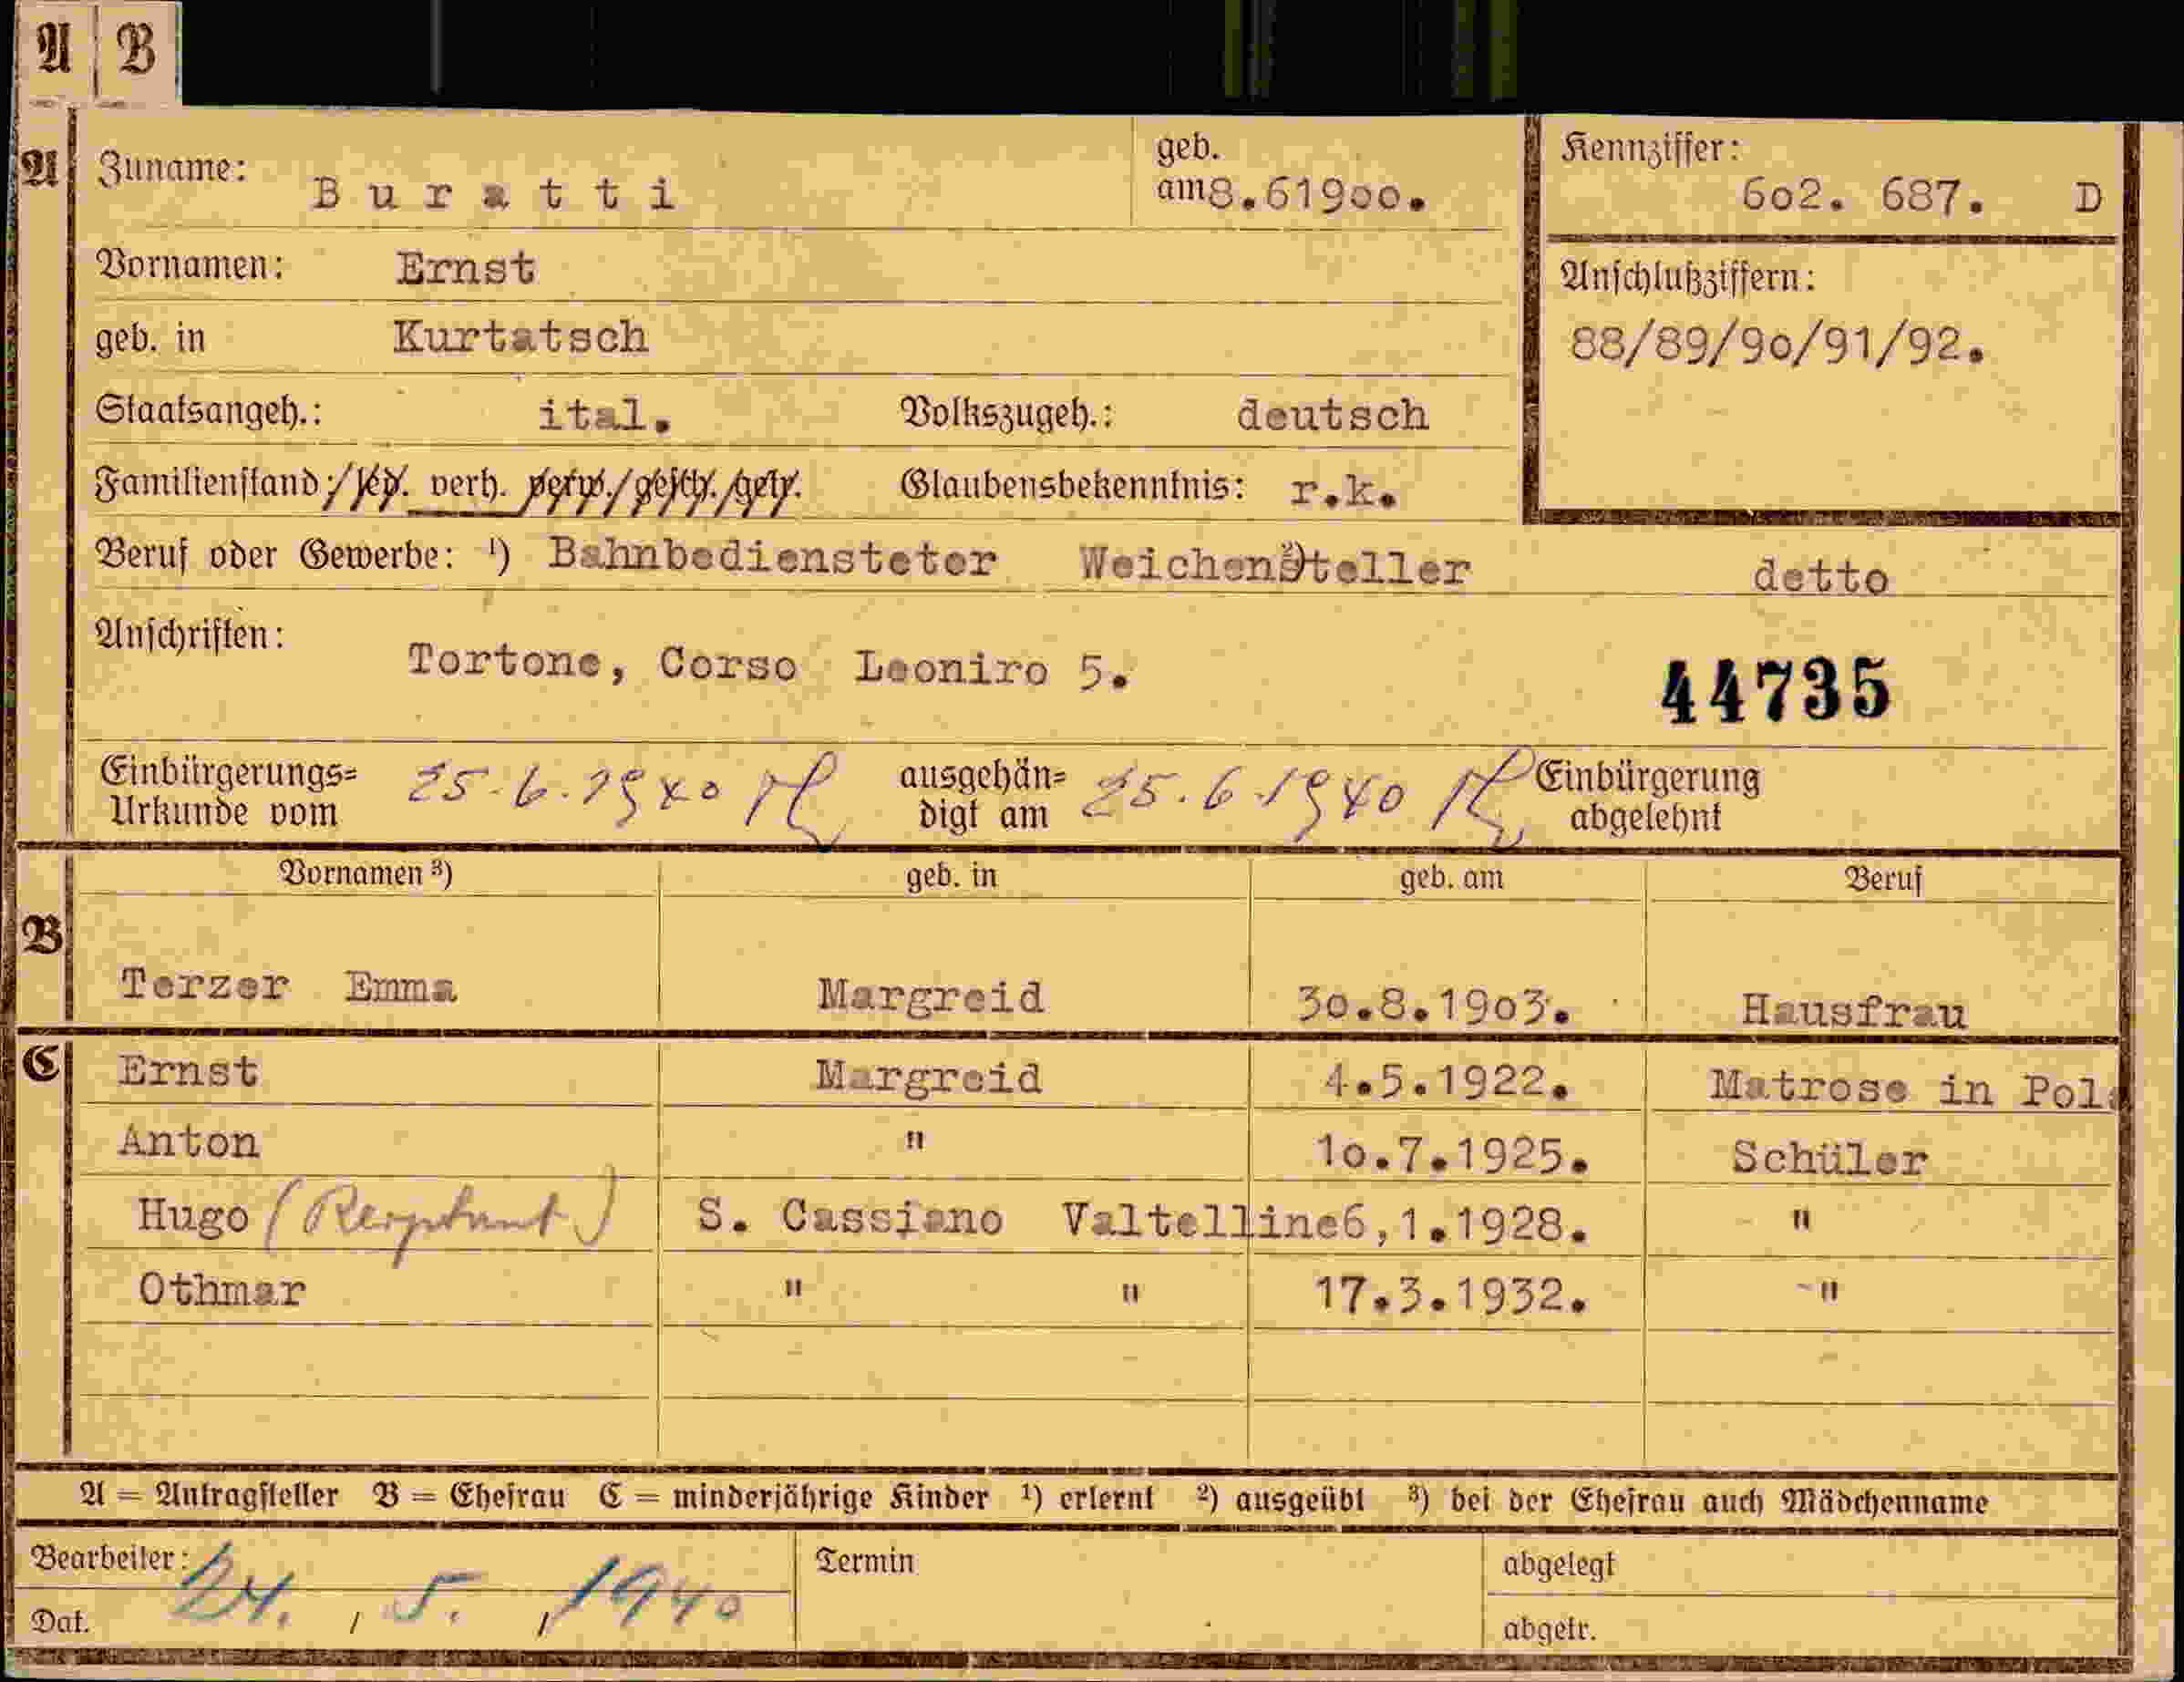 A B
A Zuname: Buratti geb. am 8.61900. Kennziffer: 602. 687. D
Vornamen: Ernst
Anschlußziffern:
geb. in Kurtatsch 88/89/90/91/92.
Staatsangeh.: ital. Volkszugeh.: deutsch
Familienstand: led. verh. verw./gesch./getr. Glaubensbekenntnis: r.k.
Beruf oder Gewerbe: ¹) Bahnbediensteter Weichensteller ²) detto
Anschriften: Tortone, Corso Leoniro 5.
44735
Einbürgerungs= Urkunde vom 25.6.1940 ausgehän= digt am 25.6.1940 Einbürgerung abgelehnt
Vornamen ³) geb. in geb. am Beruf
B Terzer Emma Margreid 30.8.1903. Hausfrau
C Ernst Margreid 4.5.1922. Matrose in Pola
Anton " 10.7.1925. Schüler
Hugo S. Cassiano Valtelline 6,1.1928. "
Othmar " " 17.3.1932. "
A = Antragsteller B = Ehefrau C = minderjährige Kinder ¹) erlernt ²) ausgeübt ³) bei der Ehefrau auch Mädchenname
Bearbeiter: Termin abgelegt
Dat. 24. , 5. , 1940 abgetr.